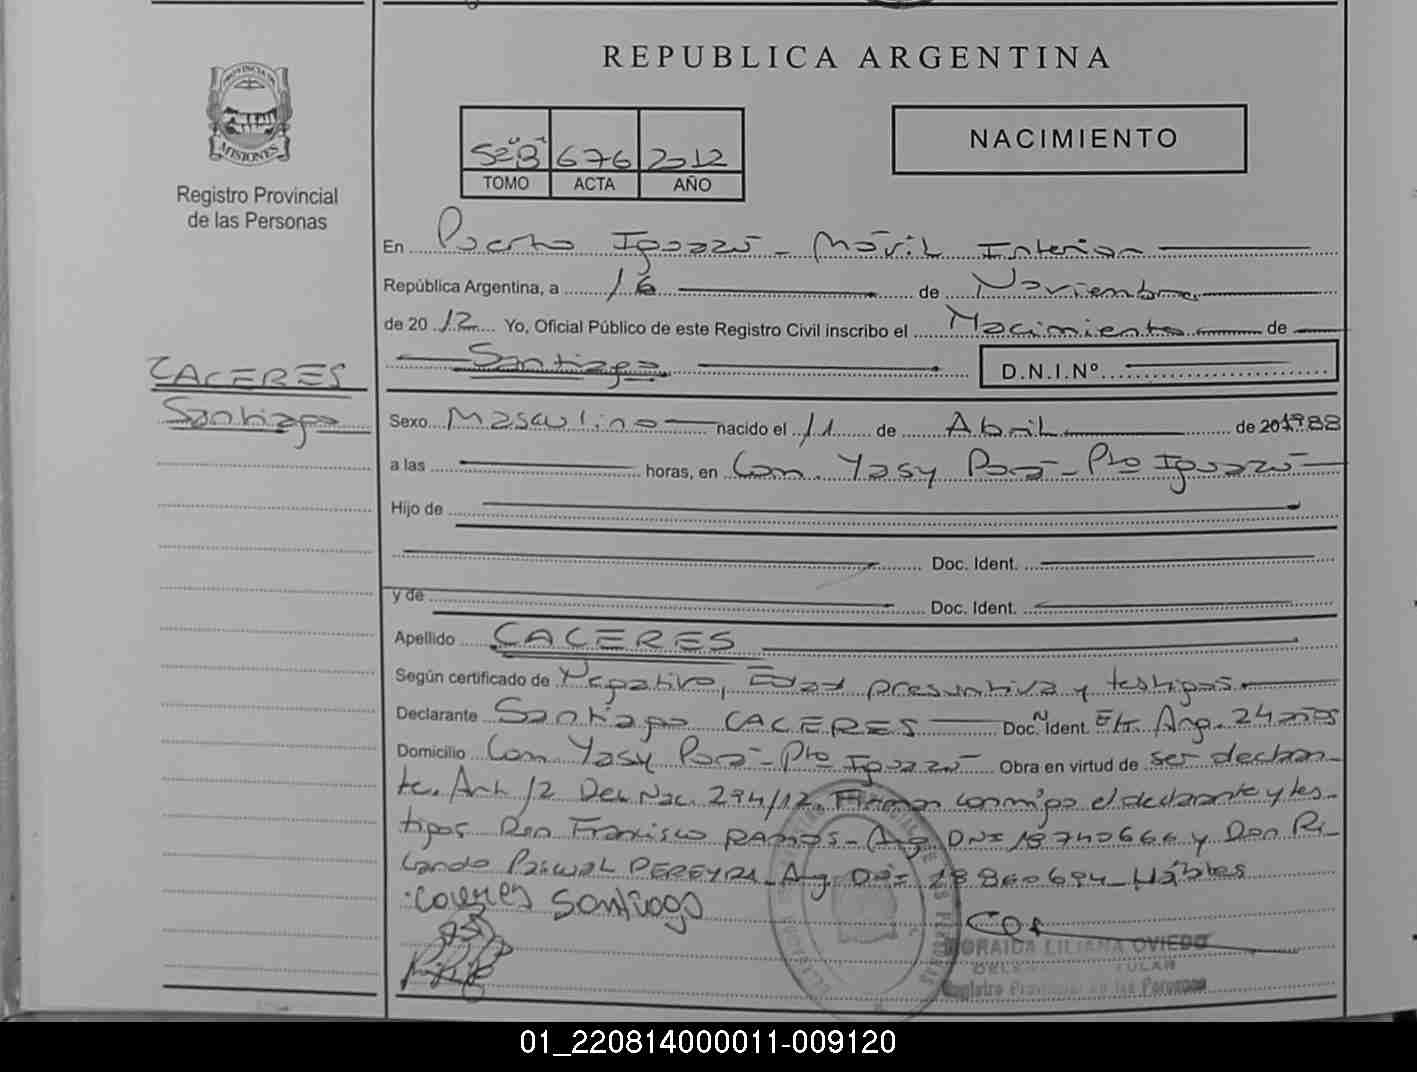 REPUBLICA ARGENTINA
PROVINCIA DE
MISIONES
Registro Provincial
de las Personas
676 2012
TOMO ACTA AÑO
NACIMIENTO
En Puerto Iguazú - Móvil Interior
República Argentina, a 16 de Noviembre
de 2012 Yo, Oficial Público de este Registro Civil inscribo el Nacimiento de
Santiago D.N.I.Nº
CACERES
Santiago
Sexo Masculino nacido el 11 de Abril de 1988
a las horas, en Com. Yasy Porá - Pto Iguazú
Hijo de
Doc. Ident.
y de Doc. Ident.
Apellido CACERES
Según certificado de Negativo, Edad presuntiva y testigos
Declarante Santiago CACERES Doc. Ident. Arg. 24 años
Domicilio Com Yasy Porá - Pto Iguazú Obra en virtud de ser declaran-
te. Art 12 Dec. Nac. 294/12. Firman conmigo el declarante y tes-
tigos Don Francisco RAMOS - Arg DNI 18740666 y Don Ri-
cardo Pascual PEREYRA - Arg DNI 18860694 - Hábiles
Caceres Santiago
ORAIDA LILIANA OVIEDO
Registro Provincial de las Personas
01_220814000011-009120